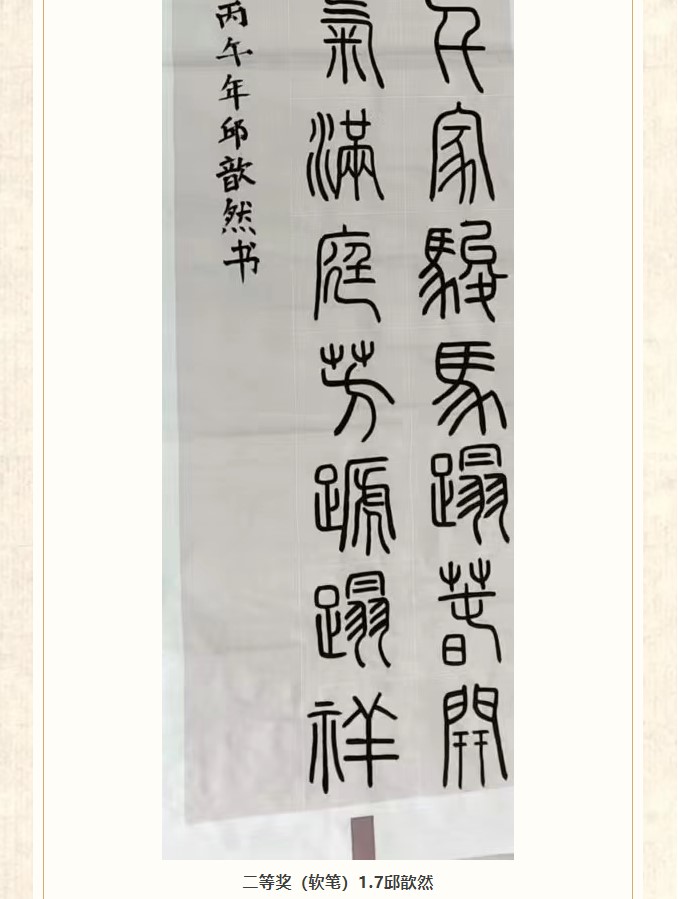 家駿馬蹋萅開
氣滿庭芳蹏蹋祥
丙午年邱歆然书
二等奖（软笔）1.7邱歆然